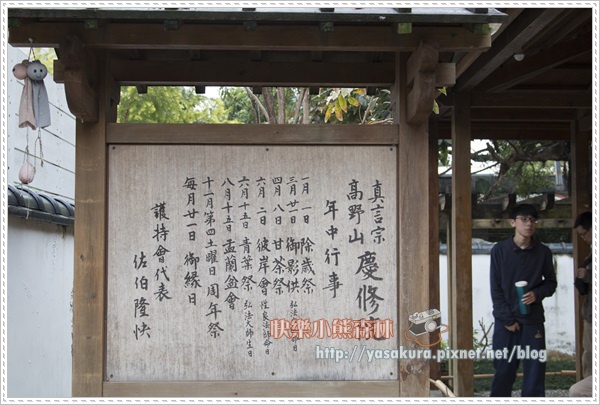 真言宗
高野山 慶修
年中行事
一月一日 除歳祭
三月廿一日 御影供 弘法
四月八日 甘茶祭
六月二日 彼岸會
六月十五日 青葉祭 弘法大師生日
八月十五日 盂蘭盆會
十一月第四土曜日 周年祭
每月廿一日 御縁日
護持會代表
佐伯隆快
快樂小熊森林
http://yasakura.pixnet.net/blog